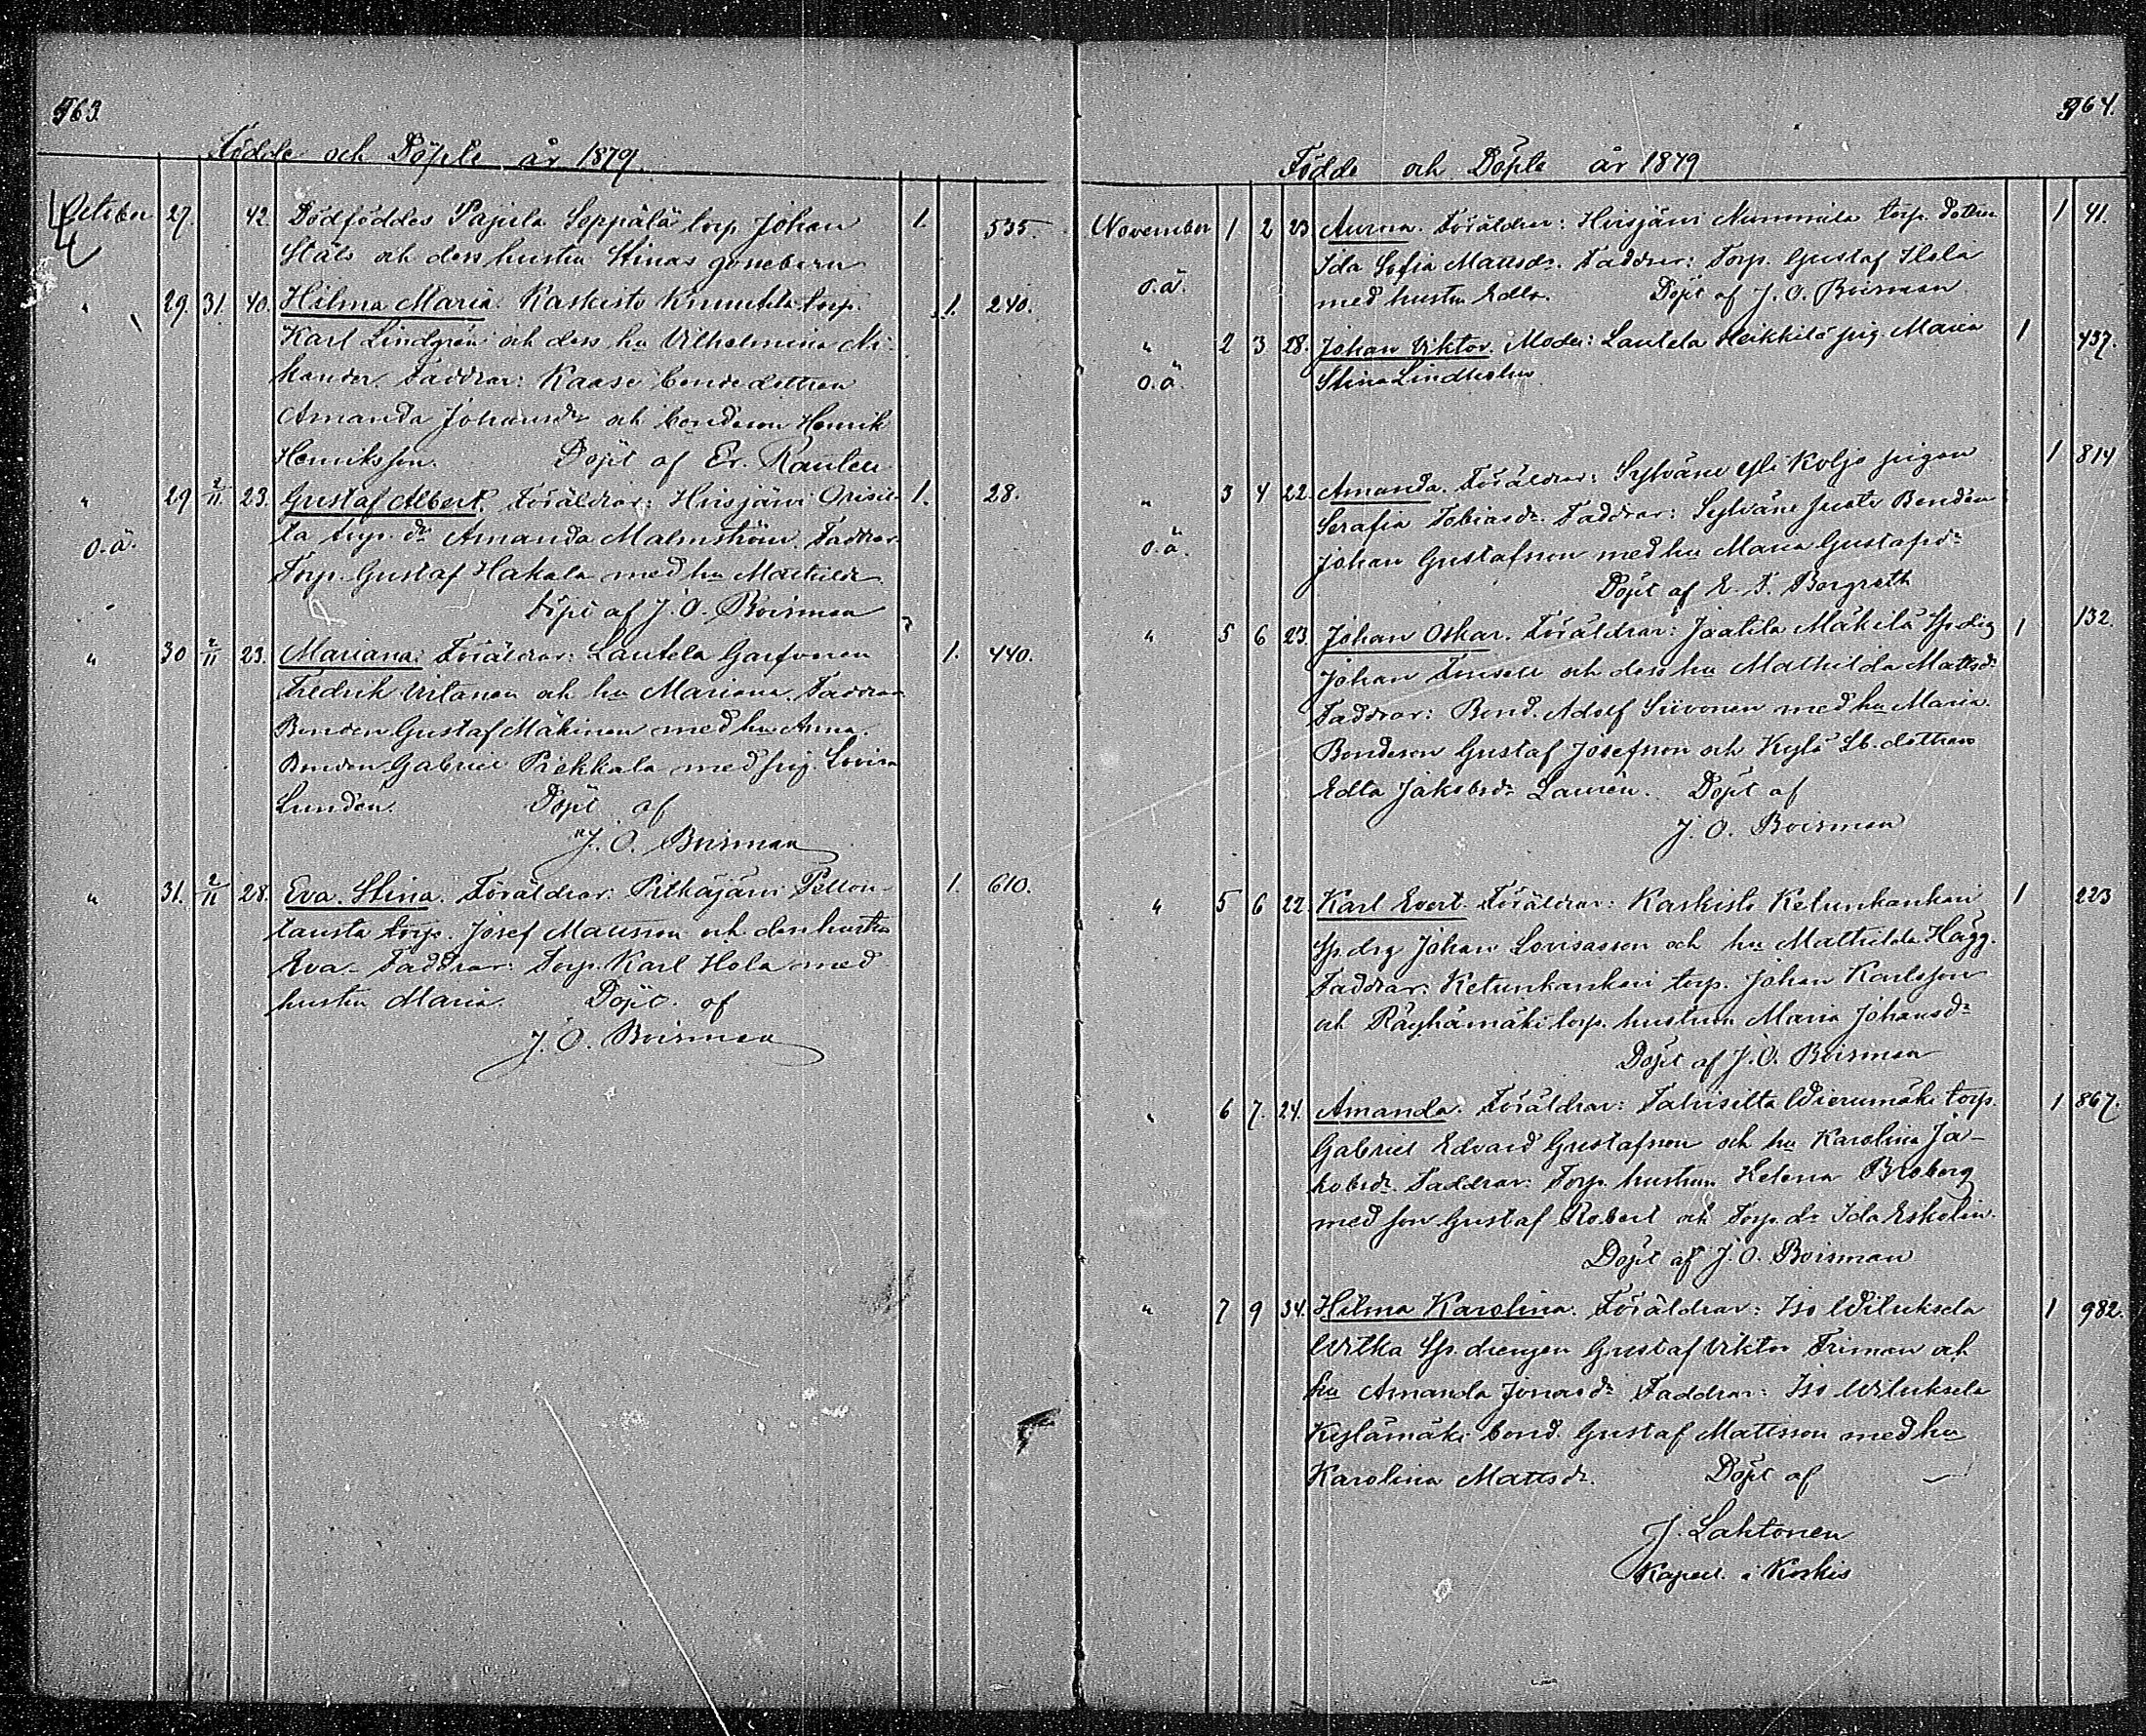 563.
Födde och Döpte år 1879.
October 27. 42. Dödföddes Pajula Seppälä torp. Johan 1. 535.
Ståls och dess hustru Stinas gossebarn
" 29. 31. 40. Hilma Maria. Kaskisto Knuutila torp. 1. 240.
Karl Lindgrén och dess hu Vilhelmina Mi-
kander. Faddrar: Kaase bondedottren
Amanda Johansdr och bondeson Henrik
Henriksson. Döpt af Er. Raulen
" 29 2/11 23. Gustaf Albert. Föräldrar: Hirsjärvi Orisil- 1. 28.
o.ä. ta torp. dr Amanda Malmström. Faddrar
Torp. Gustaf Hakala med hu Mathilda
Döpt af J. O. Boisman
" 30 2/11 23. Mariana: Föräldrar: Lautela Garfvaren 1. 440.
Fredrik Virtanen och hu Mariana. Faddrar
Bonden Gustaf Mäkinen med hu Anna.
Bonden Gabriel Piekkala med pig. Lovisa
Lundén. Döpt af
J. O. Boisman
" 31. 2/11 28. Eva Stina. Föräldrar: Pitkäjärvi Pellon- 1. 610.
tausta torp. Josef Mattsson och dess hustru
Eva. Faddrar: Torp. Karl Hola med
hustru Maria. Döpt af
J. O. Boisman
564.
Födde och Döpte år 1879
November 1 2 23 Aurora. Föräldrar: Hirsjärvi Nummila torp. dottren 1 41.
Ida Sofia Mattsdr. Faddrar: Torp. Gustaf Hola
o.ä. med hustru Edla. Döpt af J. O. Boisman
" 2 3 28. Johan Viktor. Moder: Lautela Heikkilä pig. Maria 1 437.
o.ä. Stina Lindholm
" 3 4 22. Amanda. Föräldrar: Sylvänä Yli Koljo pigan 1 814
Serafia Tobiasdr. Faddrar: Sylvänä Juste Bonden
o.ä. Johan Gustafsson med hu Maria Gustafsdr
Döpt af E. F. Bergroth
" 5 6 23 Johan Oskar. Föräldrar: Jaatila Mäkilä Sp.drg 1 132.
Johan och dess hu Mathilda Mattsdr
Faddrar: Bond. Adolf Siivonen med hu Maria.
Bondeson Gustaf Josefsson och Kylä Sb. dottren
Edla Jakobsdr Laurén. Döpt af
J. O. Boisman
" 5 6 22 Karl Evert. Föräldrar: Kaskisto Ketunkankari 1 223
Sp. drg Johan Lovisasson och hu Mathilda Hägg.
Faddrar: Ketunkankari torp. Johan Karlsson
och Räyhämäki torp. hustrun Maria Johansdr
Döpt af J. O. Boisman
" 6 7. 24. Amanda. Föräldrar: Talvisilta Wierumäki torp. 1 867.
Gabriel Edvard Gustafsson och hu Karolina Ja-
kobsdr. Faddrar: Torp. hustrun Helena Broberg
med son Gustaf Robert och Torp. dr Ida Eskolin.
Döpt af J. O. Boisman
" 7 9 34. Hilma Karolina. Föräldrar: Iso Wiluksela 1 982.
Witka Sp. drengen Gustaf Viktor Friman och
hu Amanda Jonasdr Faddrar: Iso Wiluksela
Kylämäki bond. Gustaf Mattsson med hu
Karolina Mattsdr. Döpt af
J. Lahtonen
Kapell. i Koskis